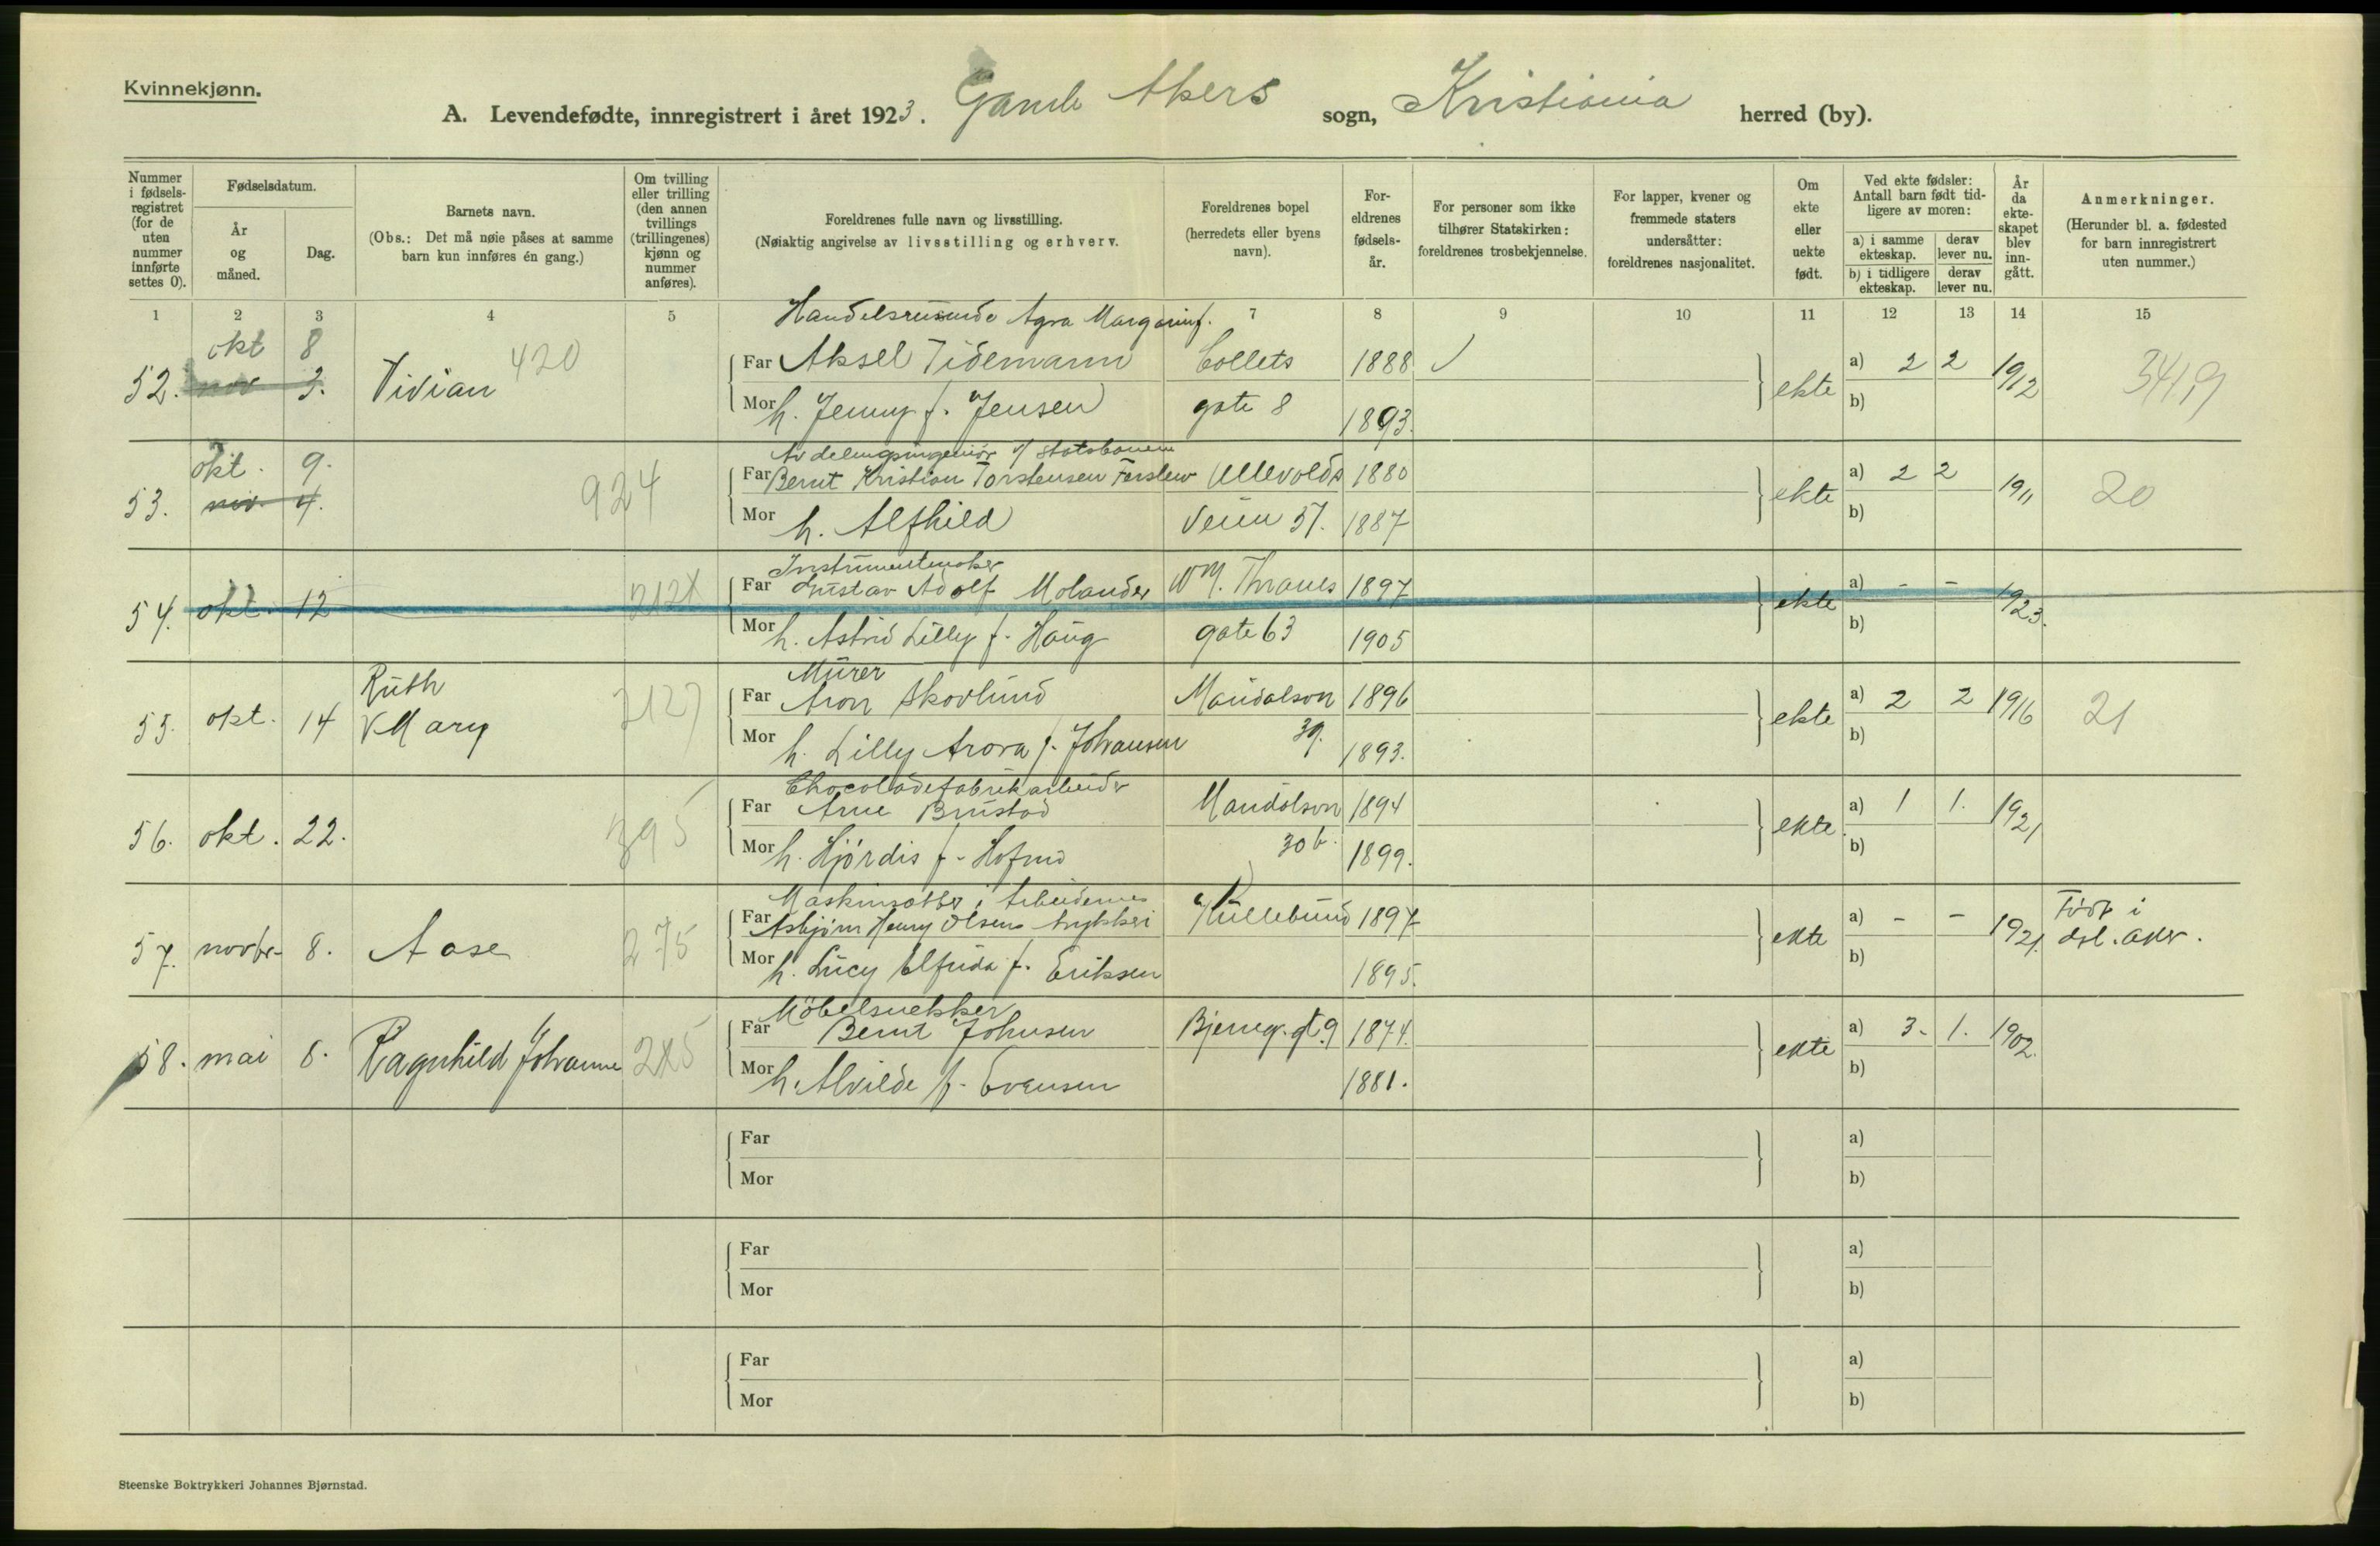 Kvinnekjønn.
A. Levendefødte, innregistrert i året 1923. Gamle Akers sogn, Kristiania herred (by).
Nummer i fødsels-registret (for de uten nummer innførte settes 0).
Fødselsdatum.
År og måned.
Dag.
Barnets navn.
(Obs.: Det må nøie påses at samme barn kun innføres én gang.)
Om tvilling eller trilling (den annen tvillings (trillingenes) kjønn og nummer anføres).
Foreldrenes fulle navn og livsstilling.
(Nøiaktig angivelse av livsstilling og erhverv.
Foreldrenes bopel (herredets eller byens navn).
For-eldrenes fødsels-år.
For personer som ikke tilhører Statskirken: foreldrenes trosbekjennelse.
For lapper, kvener og fremmede staters undersåtter: foreldrenes nasjonalitet.
Om ekte eller uekte født.
Ved ekte fødsler: Antall barn født tid-ligere av moren:
a) i samme ekteskap. derav lever nu.
b) i tidligere ekteskap. derav lever nu.
År da ekte-skapet blev inn-gått.
Anmerkninger.
(Herunder bl. a. fødested for barn innregistrert uten nummer.)
1 2 3 4 5 7 8 9 10 11 12 13 14 15
Handelsreisende Agra Margarinf.
okt 8
52. nov 3. Vivian 420 Far Aksel Tidemann Collets 1888 ekte a) 2 2 1912 3419
Mor h. Jenny f. Jensen gate 8 1893. b)
Avdelingsingeniør v/ Statsbanene
okt. 9.
53. nov. 4. 924 Far Bernt Kristian Torstensen Ullevolds 1880 ekte a) 2 2 1911 20
Mor h. Alfhild veien 57. 1887 b)
Instrumentmaker
54. okt. 12 Far Gustav Adolf Molander Wm. Thranes 1897 ekte a) - - 1923.
Mor h. Astrid Lilly f. Haug gate 63 1905 b)
Murer
Ruth
55. okt. 14 Mary 2127 Far Aron Skovlund Maridalsvn 1896 ekte a) 2 2 1916 21
Mor h. Lilly Arora f. Johansen 39. 1893. b)
Chocoladefabrikarbeider
56. okt. 22. 395 Far Arne Brustad Maridalsvn 1894 ekte. a) 1 1. 1921
Mor h. Hjørdis f. 30 b. 1899. b)
Maskinsetter i Arbeidernes
57. novbr. 8. Aase 275 Far Asbjørn Henry Olsen trykkeri 1897 ekte a) - - 1921. Født i
Mor h. Lucy Elfrida f. Eriksen 1895. b) Aker.
Möbelsnekker
58. mai 8. Ragnhild Johanne Far Bernt Johnsen Bjerreg. gt. 9 1874. ekte a) 3. 1. 1902.
Mor h. Alvilde f. Evensen 1881. b)
Far a)
Mor b)
Far a)
Mor b)
Far a)
Mor b)
Steenske Boktrykkeri Johannes Bjørnstad.